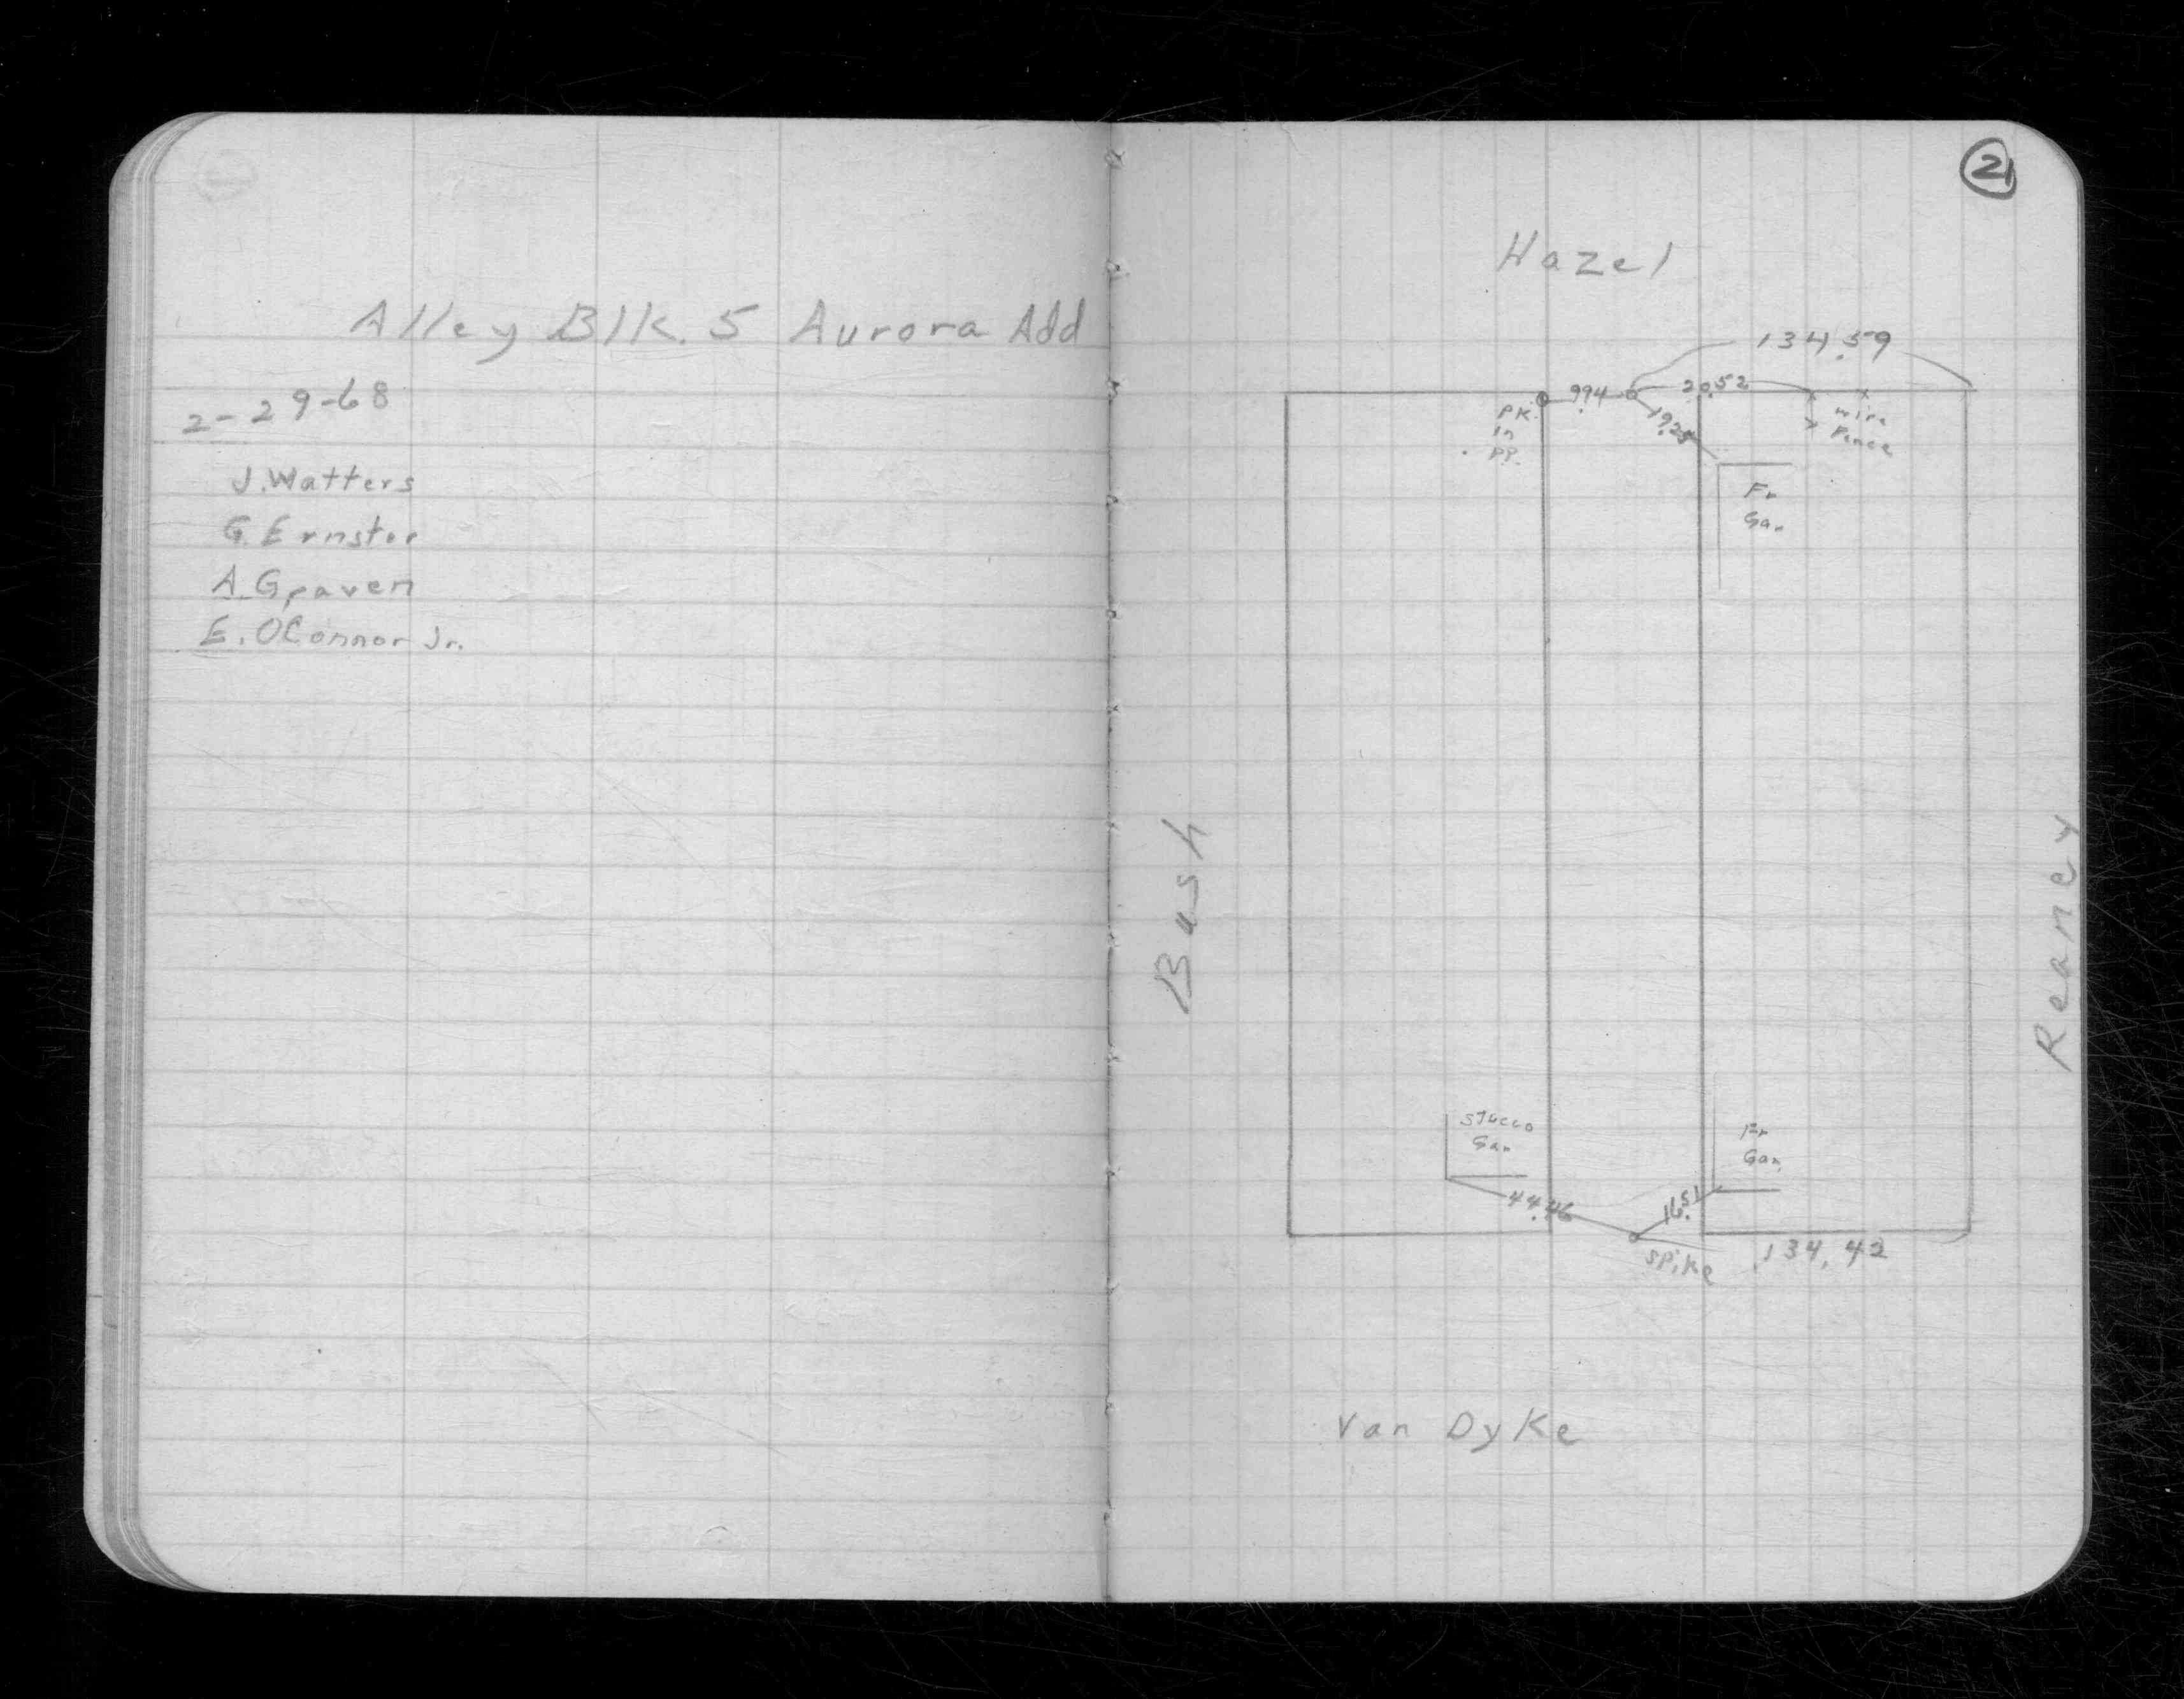 Alley Blk. 5 Aurora Add
2-29-68
J. Watters
G. Ernster
A. Graven
E. OConnor Jr.
21
Hazel
134.59
9.94
20.52
PK.
in
PP.
19.25
wire
Fence
Fr
Gar
Bush
Reaney
Stucco
Gar
Fr
Gar.
44.46
16.51
spike
134.42
Van Dyke